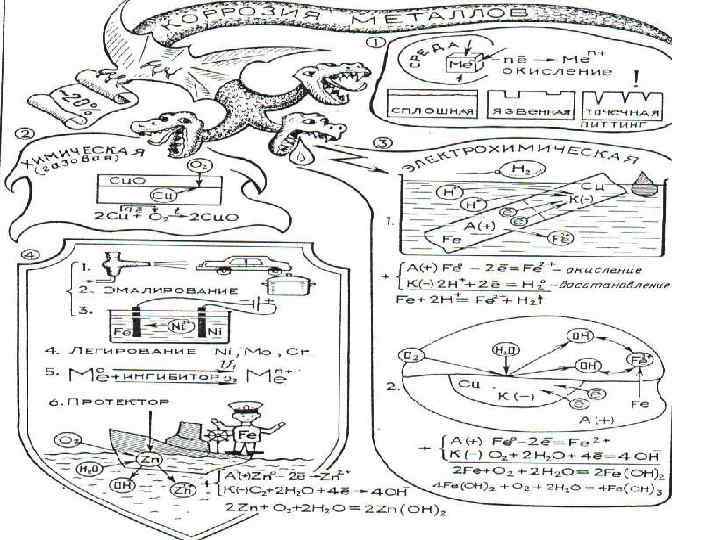 КОРРОЗИЯ МЕТАЛЛОВ
1
СРЕДА
Me
-nē → Meⁿ⁺
ОКИСЛЕНИЕ
!
СПЛОШНАЯ
ЯЗВЕННАЯ
ТОЧЕЧНАЯ
ПИТТИНГ
-20%
2
ХИМИЧЕСКАЯ
(газовая)
O₂
CuO
Cu
2Cu + O₂ → 2CuO
3
ЭЛЕКТРОХИМИЧЕСКАЯ
H₂
1.
H⁺
H⁺
Cu
K(-)
ē
ē
A(+)
Fe
Fe²⁺
+ A(+) Fe⁰ - 2ē = Fe²⁺ - окисление
K(-) 2H⁺ + 2ē = H₂⁰ - восстановление
Fe + 2H⁺ = Fe²⁺ + H₂↑
2.
O₂
H₂O
OH⁻
OH⁻
Fe²⁺
Cu
K(-)
ē
ē
Fe
A(+)
+ A(+) Fe⁰ - 2ē = Fe²⁺
K(-) O₂ + 2H₂O + 4ē = 4OH⁻
2Fe + O₂ + 2H₂O = 2Fe(OH)₂
4Fe(OH)₂ + O₂ + 2H₂O = 4Fe(OH)₃
4
1.
2. ЭМАЛИРОВАНИЕ
3.
Fe
Ni²⁺
Ni
4. ЛЕГИРОВАНИЕ Ni, Mo, Cr
5. Me⁰ + ИНГИБИТОР O₂ Meⁿ⁺
6. ПРОТЕКТОР
Fe
O₂
H₂O
Zn
OH⁻
Zn²⁺
+ A(+) Zn⁰ - 2ē → Zn²⁺
K(-) O₂ + 2H₂O + 4ē → 4OH⁻
2Zn + O₂ + 2H₂O = 2Zn(OH)₂